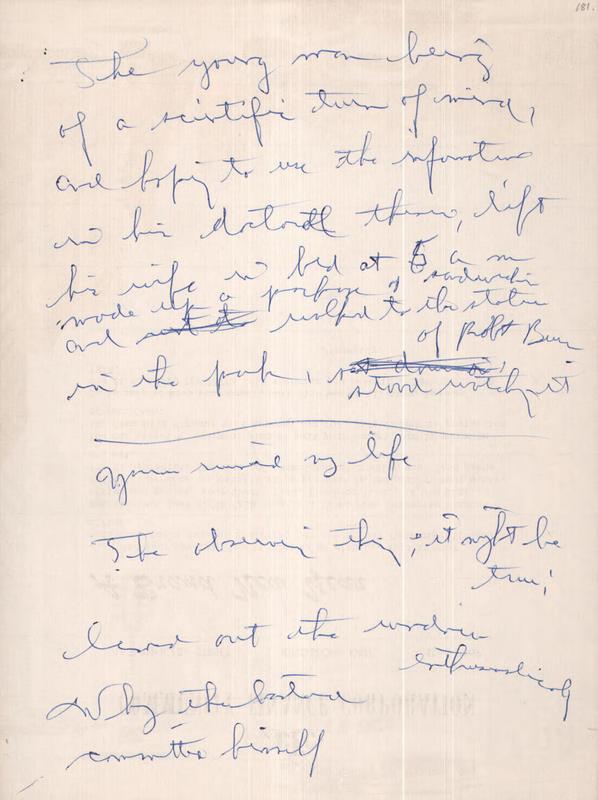 181.
The young man being
of a scientific turn of mind,
and hoping to use the information
in his doctoral thesis, left
his wife in bed at 5 a m
made up a package of sandwiches
and walked to the statue
of Robt Burns
in the park, sat down on,
stood watching it
ruined my life
The observing thing; it might be
true;
leaned out the window
enthusiastically
Why the bastard
committed himself